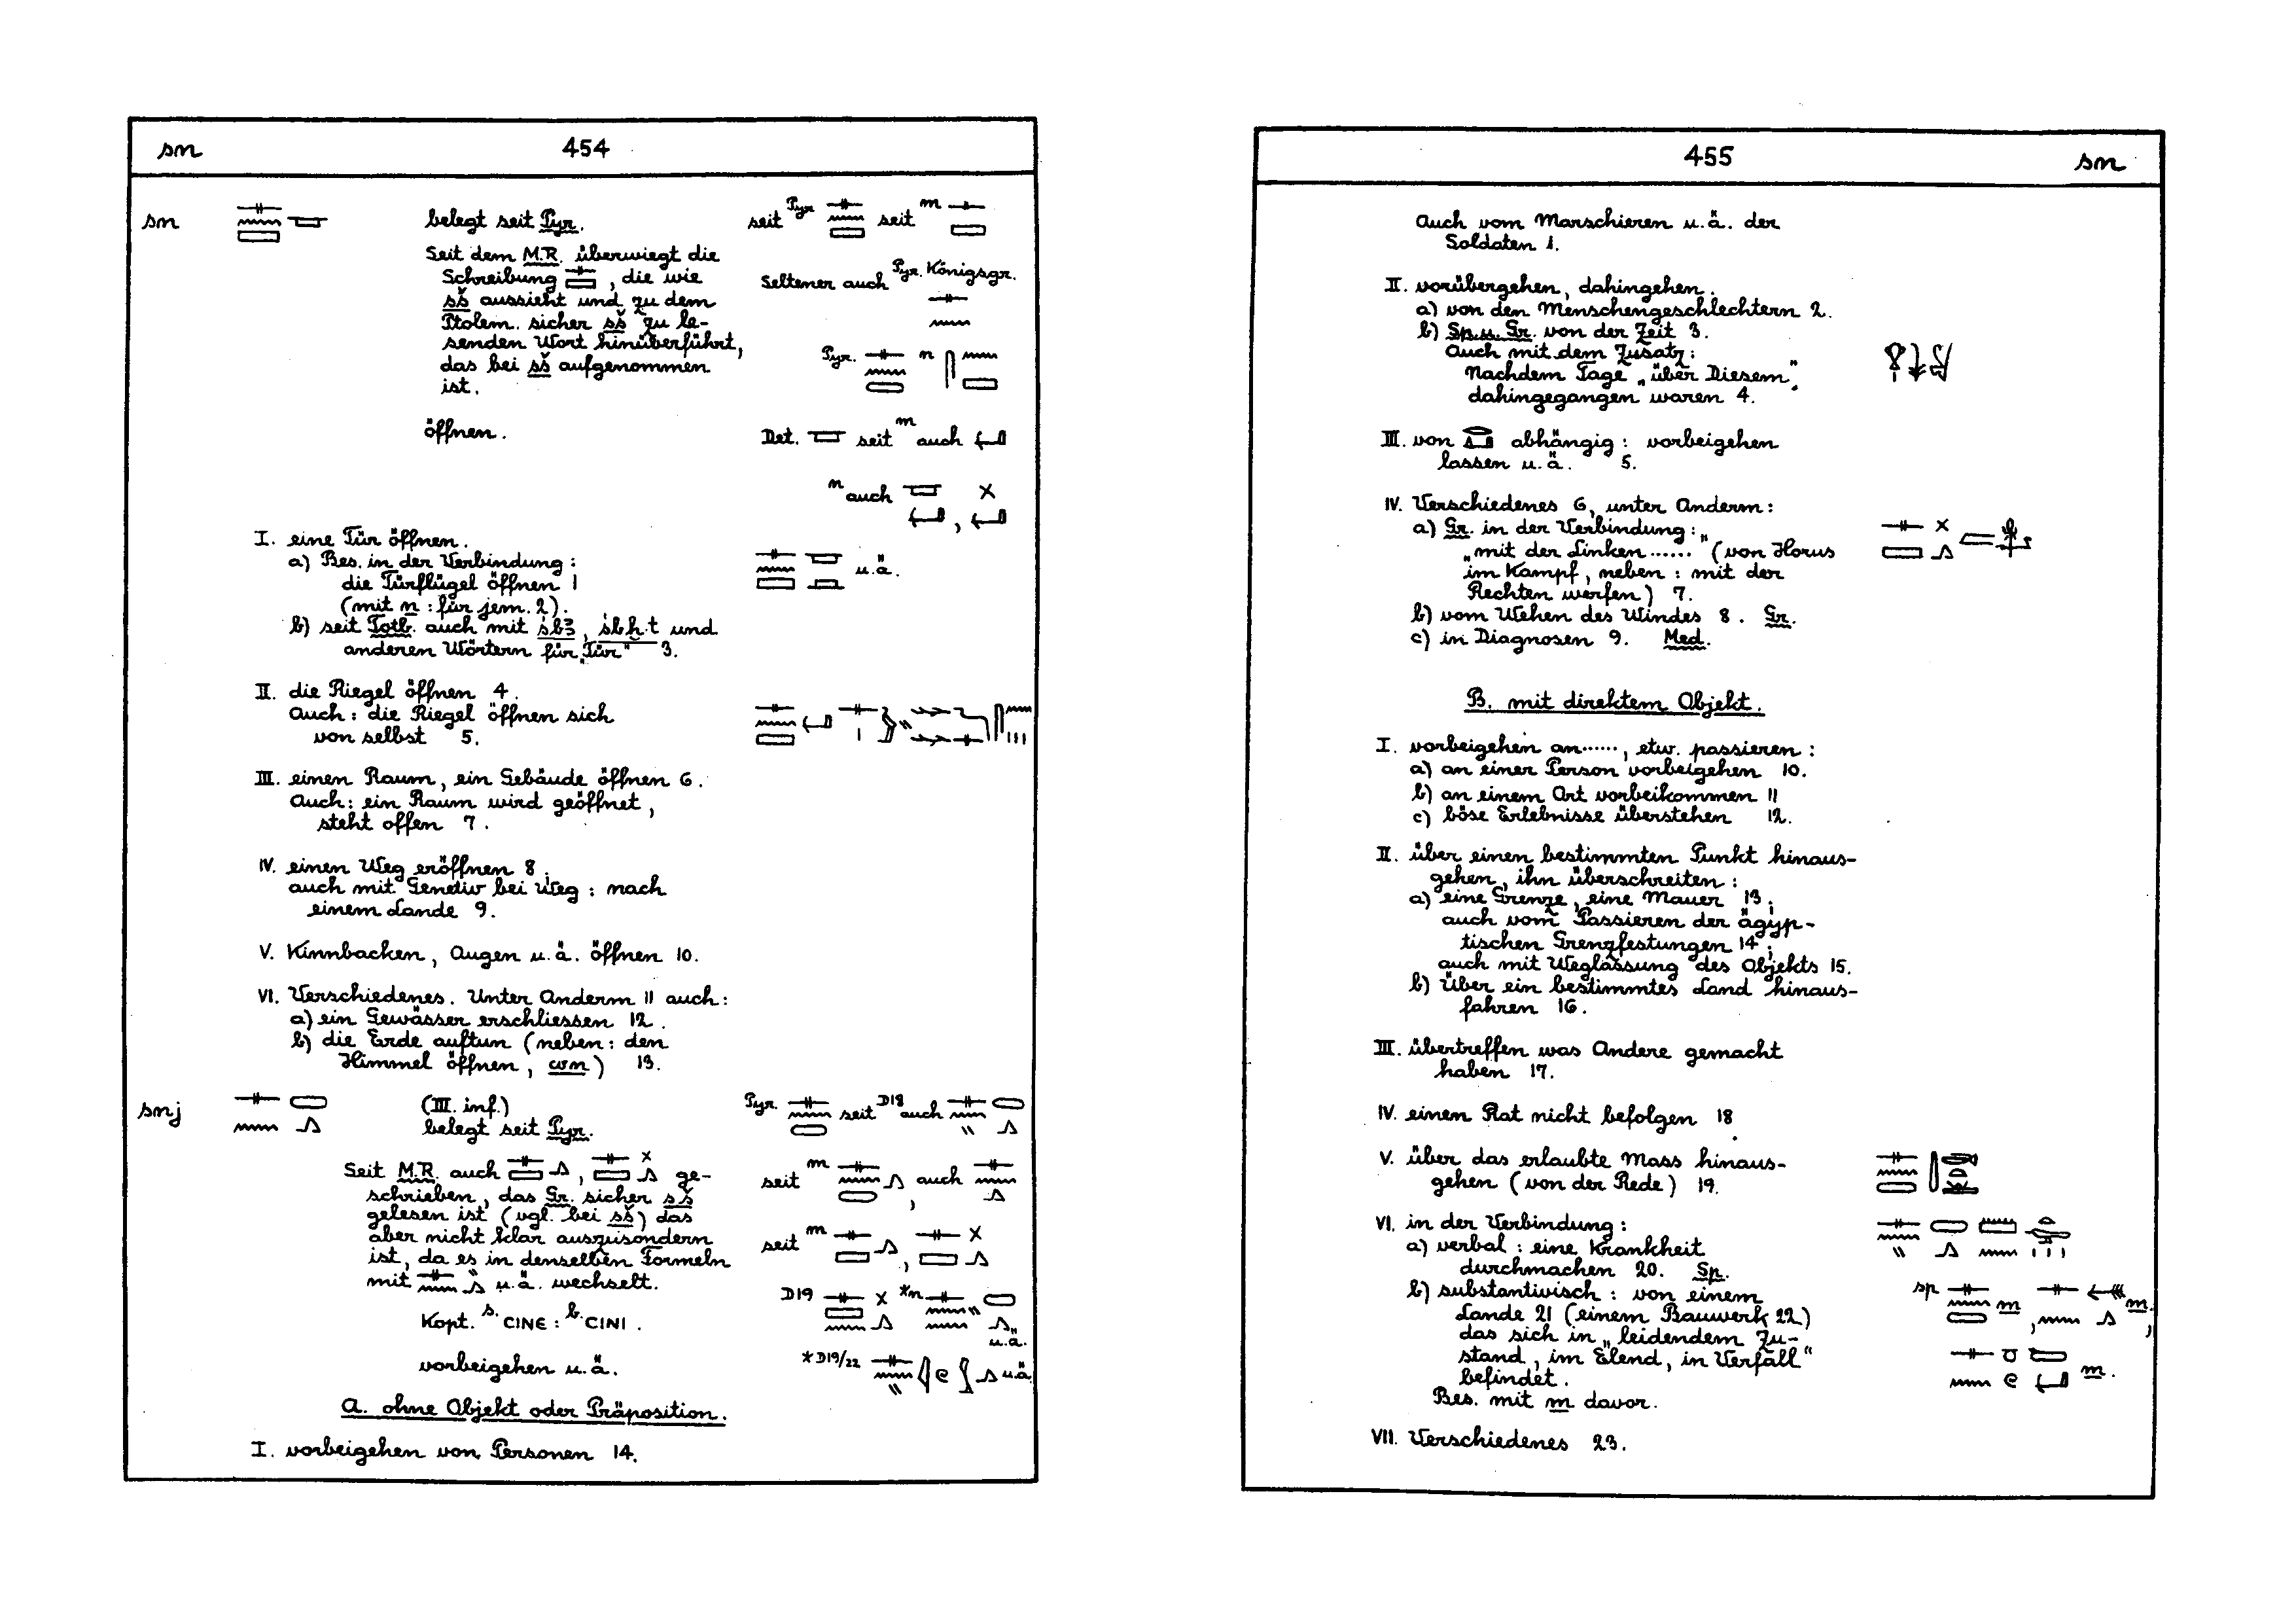 sn 454
sn belegt seit Pyr.
Seit dem M.R. überwiegt die
Schreibung , die wie
sš aussieht und zu dem
Ptolem. sicher sš zu le-
senden Wort hinüberführt,
das bei sš aufgenommen
ist.
öffnen.
seit Pyr seit m
Seltener auch Pyr. Königsgr.
Pyr. n
Det. seit m auch
n auch ,
I. eine Tür öffnen.
a) Bes. in der Verbindung: u.ä.
die Türflügel öffnen 1
(mit n : für jem. 2).
b) seit Totb. auch mit śbꜣ, śbḫ.t und
anderen Wörtern für „Tür“ 3.
II. die Riegel öffnen 4.
Auch: die Riegel öffnen sich
von selbst 5.
III. einen Raum, ein Gebäude öffnen 6.
Auch: ein Raum wird geöffnet,
steht offen 7.
IV. einen Weg eröffnen 8;
auch mit Genetiv bei Weg: nach
einem Lande 9.
V. Kinnbacken, Augen u.ä. öffnen 10.
VI. Verschiedenes. Unter Anderm 11 auch:
a) ein Gewässer erschliessen 12.
b) die Erde auftun (neben: den
Himmel öffnen, wn) 13.
snj (III. inf.)
belegt seit Pyr.
Seit M.R. auch , ge-
schrieben, das Gr. sicher sš
gelesen ist (vgl. bei sš) das
aber nicht klar auszusondern
ist, da es in denselben Formeln
mit u.ä. wechselt.
Kopt. s. CINE : b. CINI.
vorbeigehen u.ä.
Pyr. seit D18 auch
seit m , auch
seit m ,
D19 *n u.ä.
*D19/22 u.ä
A. ohne Objekt oder Präposition.
I. vorbeigehen von Personen 14.
455 sn
Auch vom Marschieren u.ä. der
Soldaten 1.
II. vorübergehen, dahingehen.
a) von den Menschengeschlechtern 2.
b) Sp.u.Gr. von der Zeit 3.
Auch mit dem Zusatz:
Nachdem Tage „über Diesem“
dahingegangen waren 4.
III. von abhängig: vorbeigehen
lassen u.ä. 5.
IV. Verschiedenes 6, unter Anderm:
a) Gr. in der Verbindung:
„mit der Linken ......“ (von Horus
im Kampf, neben: mit der
Rechten werfen) 7.
b) vom Wehen des Windes 8. Gr.
c) in Diagnosen 9. Med.
B. mit direktem Objekt.
I. vorbeigehen an ......, etw. passieren:
a) an einer Person vorbeigehen 10.
b) an einem Ort vorbeikommen 11
c) böse Erlebnisse überstehen 12.
II. über einen bestimmten Punkt hinaus-
gehen, ihn überschreiten:
a) eine Grenze, eine Mauer 13;
auch vom Passieren der ägyp-
tischen Grenzfestungen 14;
auch mit Weglassung des Objekts 15.
b) über ein bestimmtes Land hinaus-
fahren 16.
III. übertreffen was Andere gemacht
haben 17.
IV. einen Rat nicht befolgen 18
V. über das erlaubte Mass hinaus-
gehen (von der Rede) 19.
VI. in der Verbindung:
a) verbal: eine Krankheit
durchmachen 20. Sp.
b) substantivisch: von einem
Lande 21 (einem Bauwerk 22)
das sich in „leidendem Zu-
stand, im Elend, in Verfall“
befindet.
Bes. mit m davor.
sp m, m,
m.
VII. Verschiedenes 23.